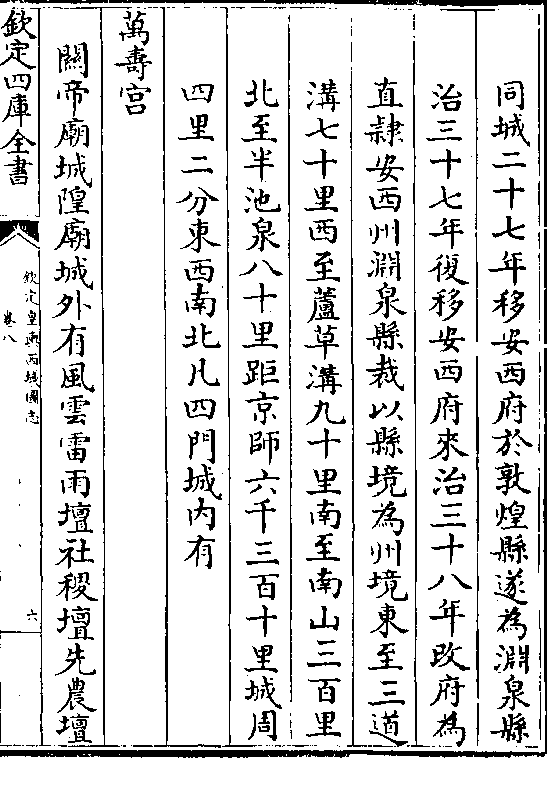 同城二十七年移安西府於敦煌縣遂為淵泉縣
治三十七年復移安西府來治三十八年改府為
直隷安西州淵泉縣裁以縣境為州境東至三道
溝七十里西至蘆草溝九十里南至南山三百里
北至半池泉八十里距京師六千三百十里城周
四里二分東西南北凡四門城内有
萬壽宫
關帝廟城隍廟城外有風雲雷雨壇社稷壇先農壇
欽定四庫全書
欽定皇輿西域圖志
卷八
六